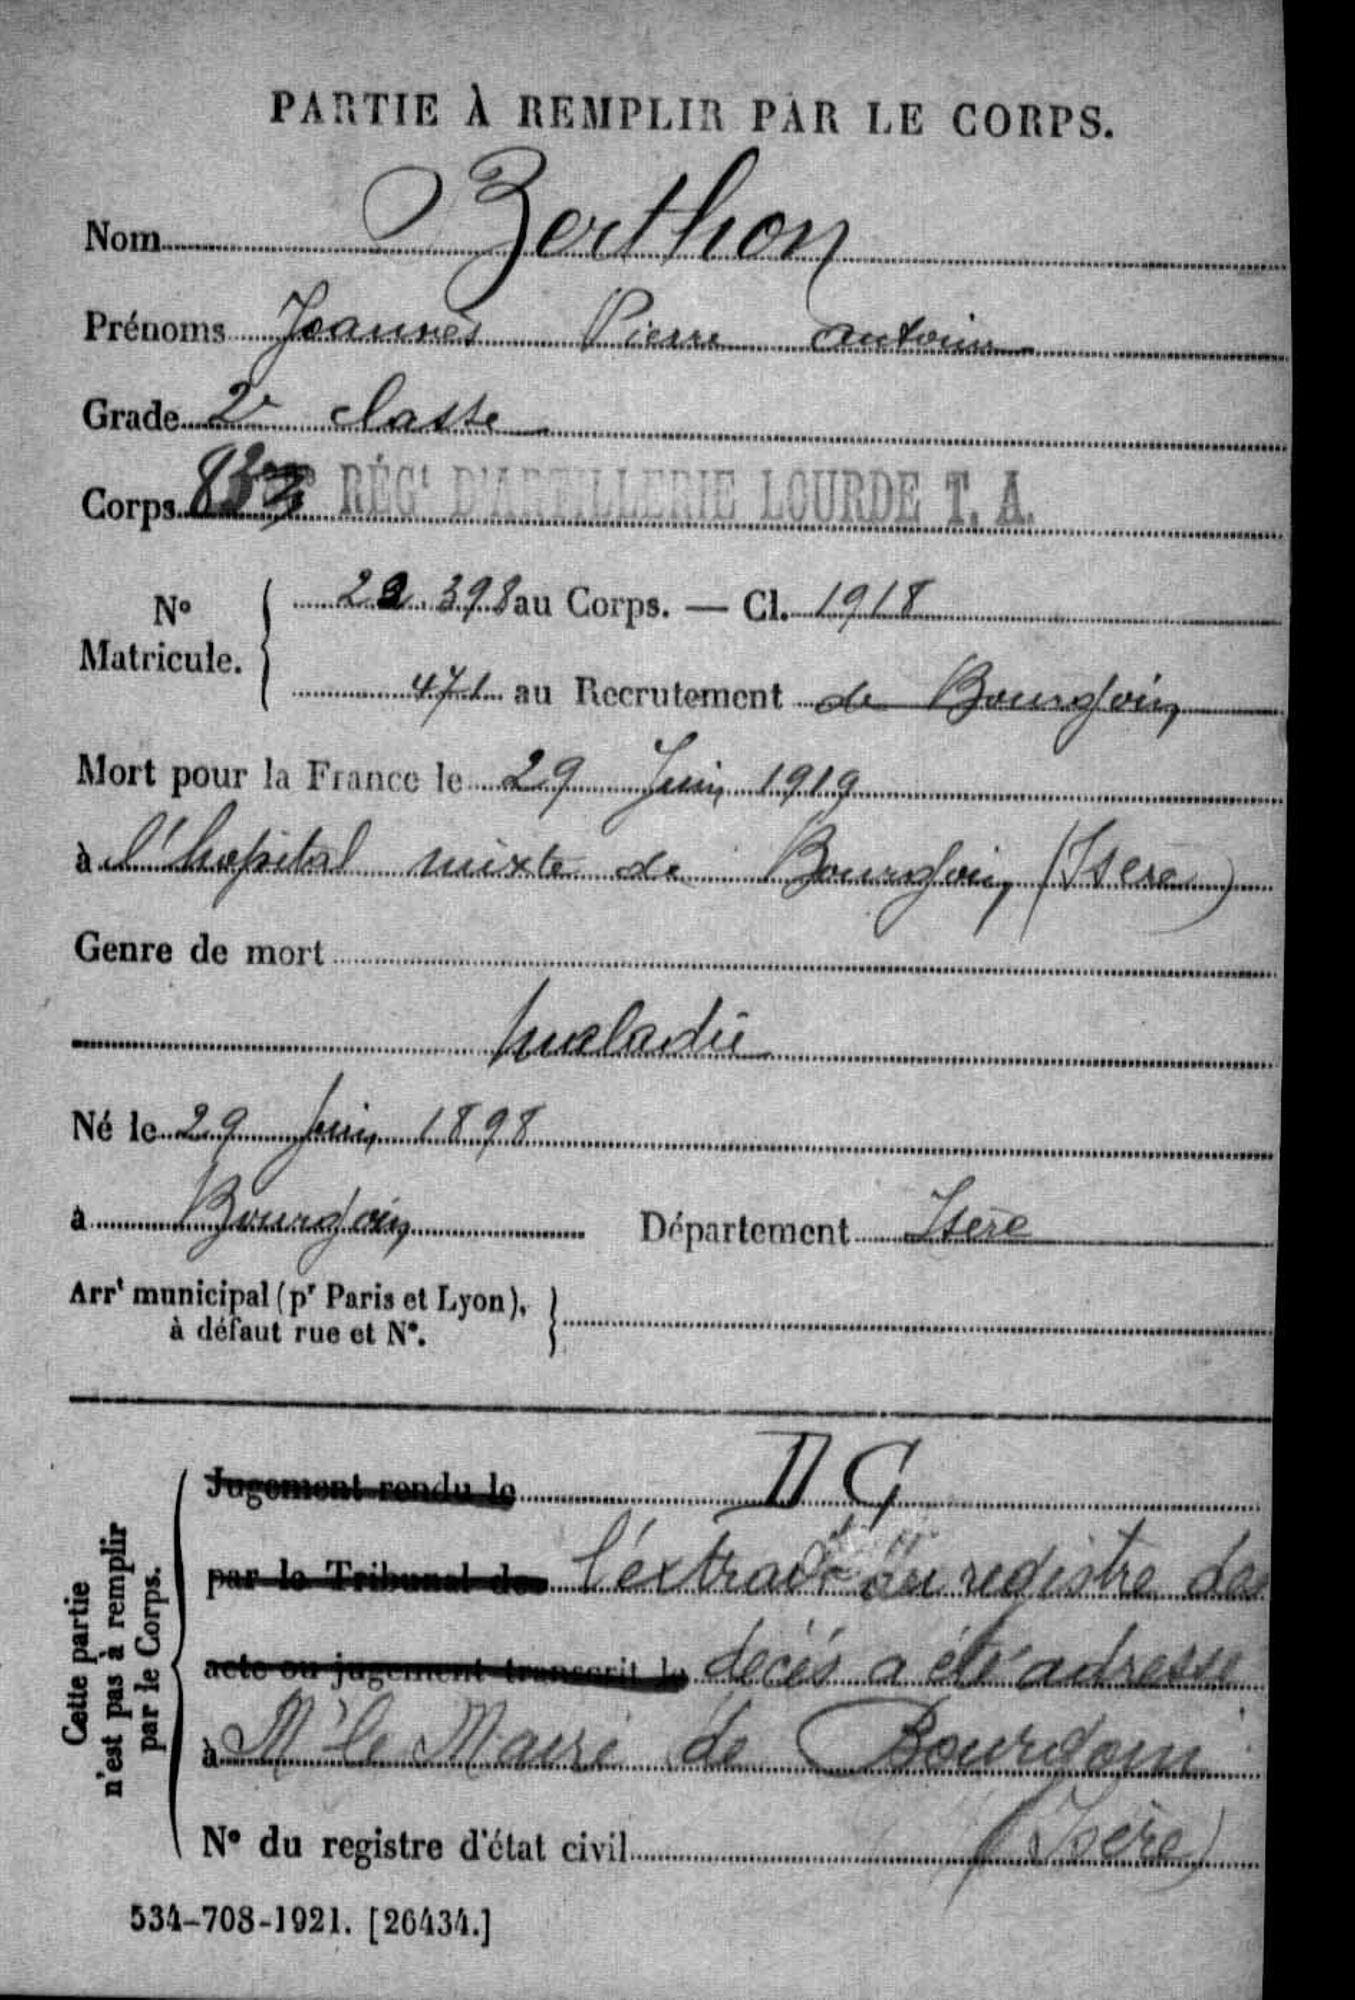 PARTIE À REMPLIR PAR LE CORPS.
Nom Berthon
Prénoms Joannès Pierre Antoine
Grade 2e classe
Corps 83e RÉGt D'ARTILLERIE LOURDE T. A.
No Matricule. 22.398 au Corps. — Cl. 1918
471 au Recrutement de Bourgoin
Mort pour la France le 29 Juin 1919
à l'hopital mixte de Bourgoin (Isère)
Genre de mort
maladie
Né le 29 Juin 1898
à Bourgoin Département Isère
Arrt municipal (pr Paris et Lyon),
à défaut rue et No.
Cette partie
n'est pas à remplir
par le Corps.
Jugement rendu le DC
par le Tribunal de l'extrait du registre des
acte ou jugement transcrit le décès a été adressé
à Mr le Maire de Bourgoin
(Isère)
No du registre d'état civil
534-708-1921. [26434.]